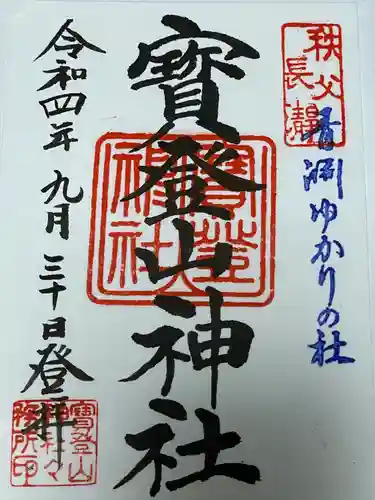 秩父
長瀞
青淵ゆかりの社
寳登山神社
寳登山
神社
令和四年九月三十日登拝
寳登山
神社々
務所印